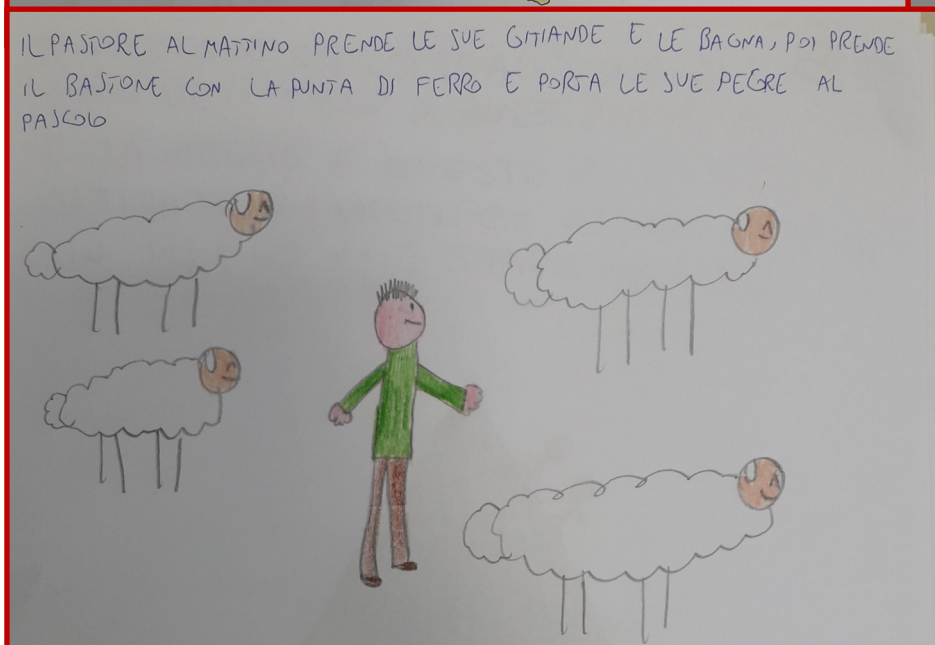 IL PASTORE AL MATTINO PRENDE LE SUE GHIANDE E LE BAGNA, POI PRENDE
IL BASTONE CON LA PUNTA DI FERRO E PORTA LE SUE PECORE AL
PASCOLO